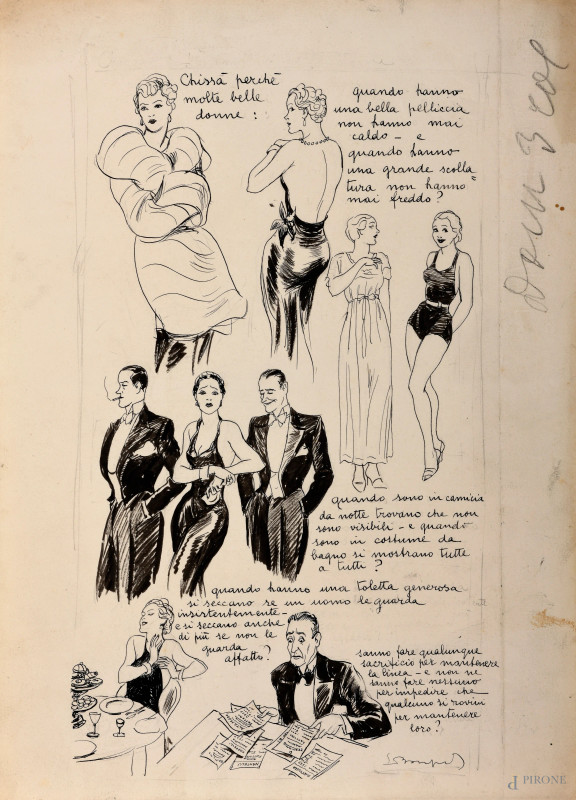 Chissà perchè
molte belle
donne :
quando hanno
una bella pelliccia
non hanno mai
caldo – e
quando hanno
una grande scolla=
tura non hanno
mai freddo?
quando sono in camicia
da notte trovano che non
sono visibili – e quando
sono in costume da
bagno si mostrano tutte
a tutti ?
quando hanno una toletta generosa
si seccano se un uomo le guarda
insistentemente –
e si seccano anche
di più se non le
guarda
affatto?
sanno fare qualunque
sacrificio per mantenere
la linea – e non ne
sanno fare nessuno
per impedire che
qualcuno si rovini
per mantenere
loro?
3 col
PIRONE